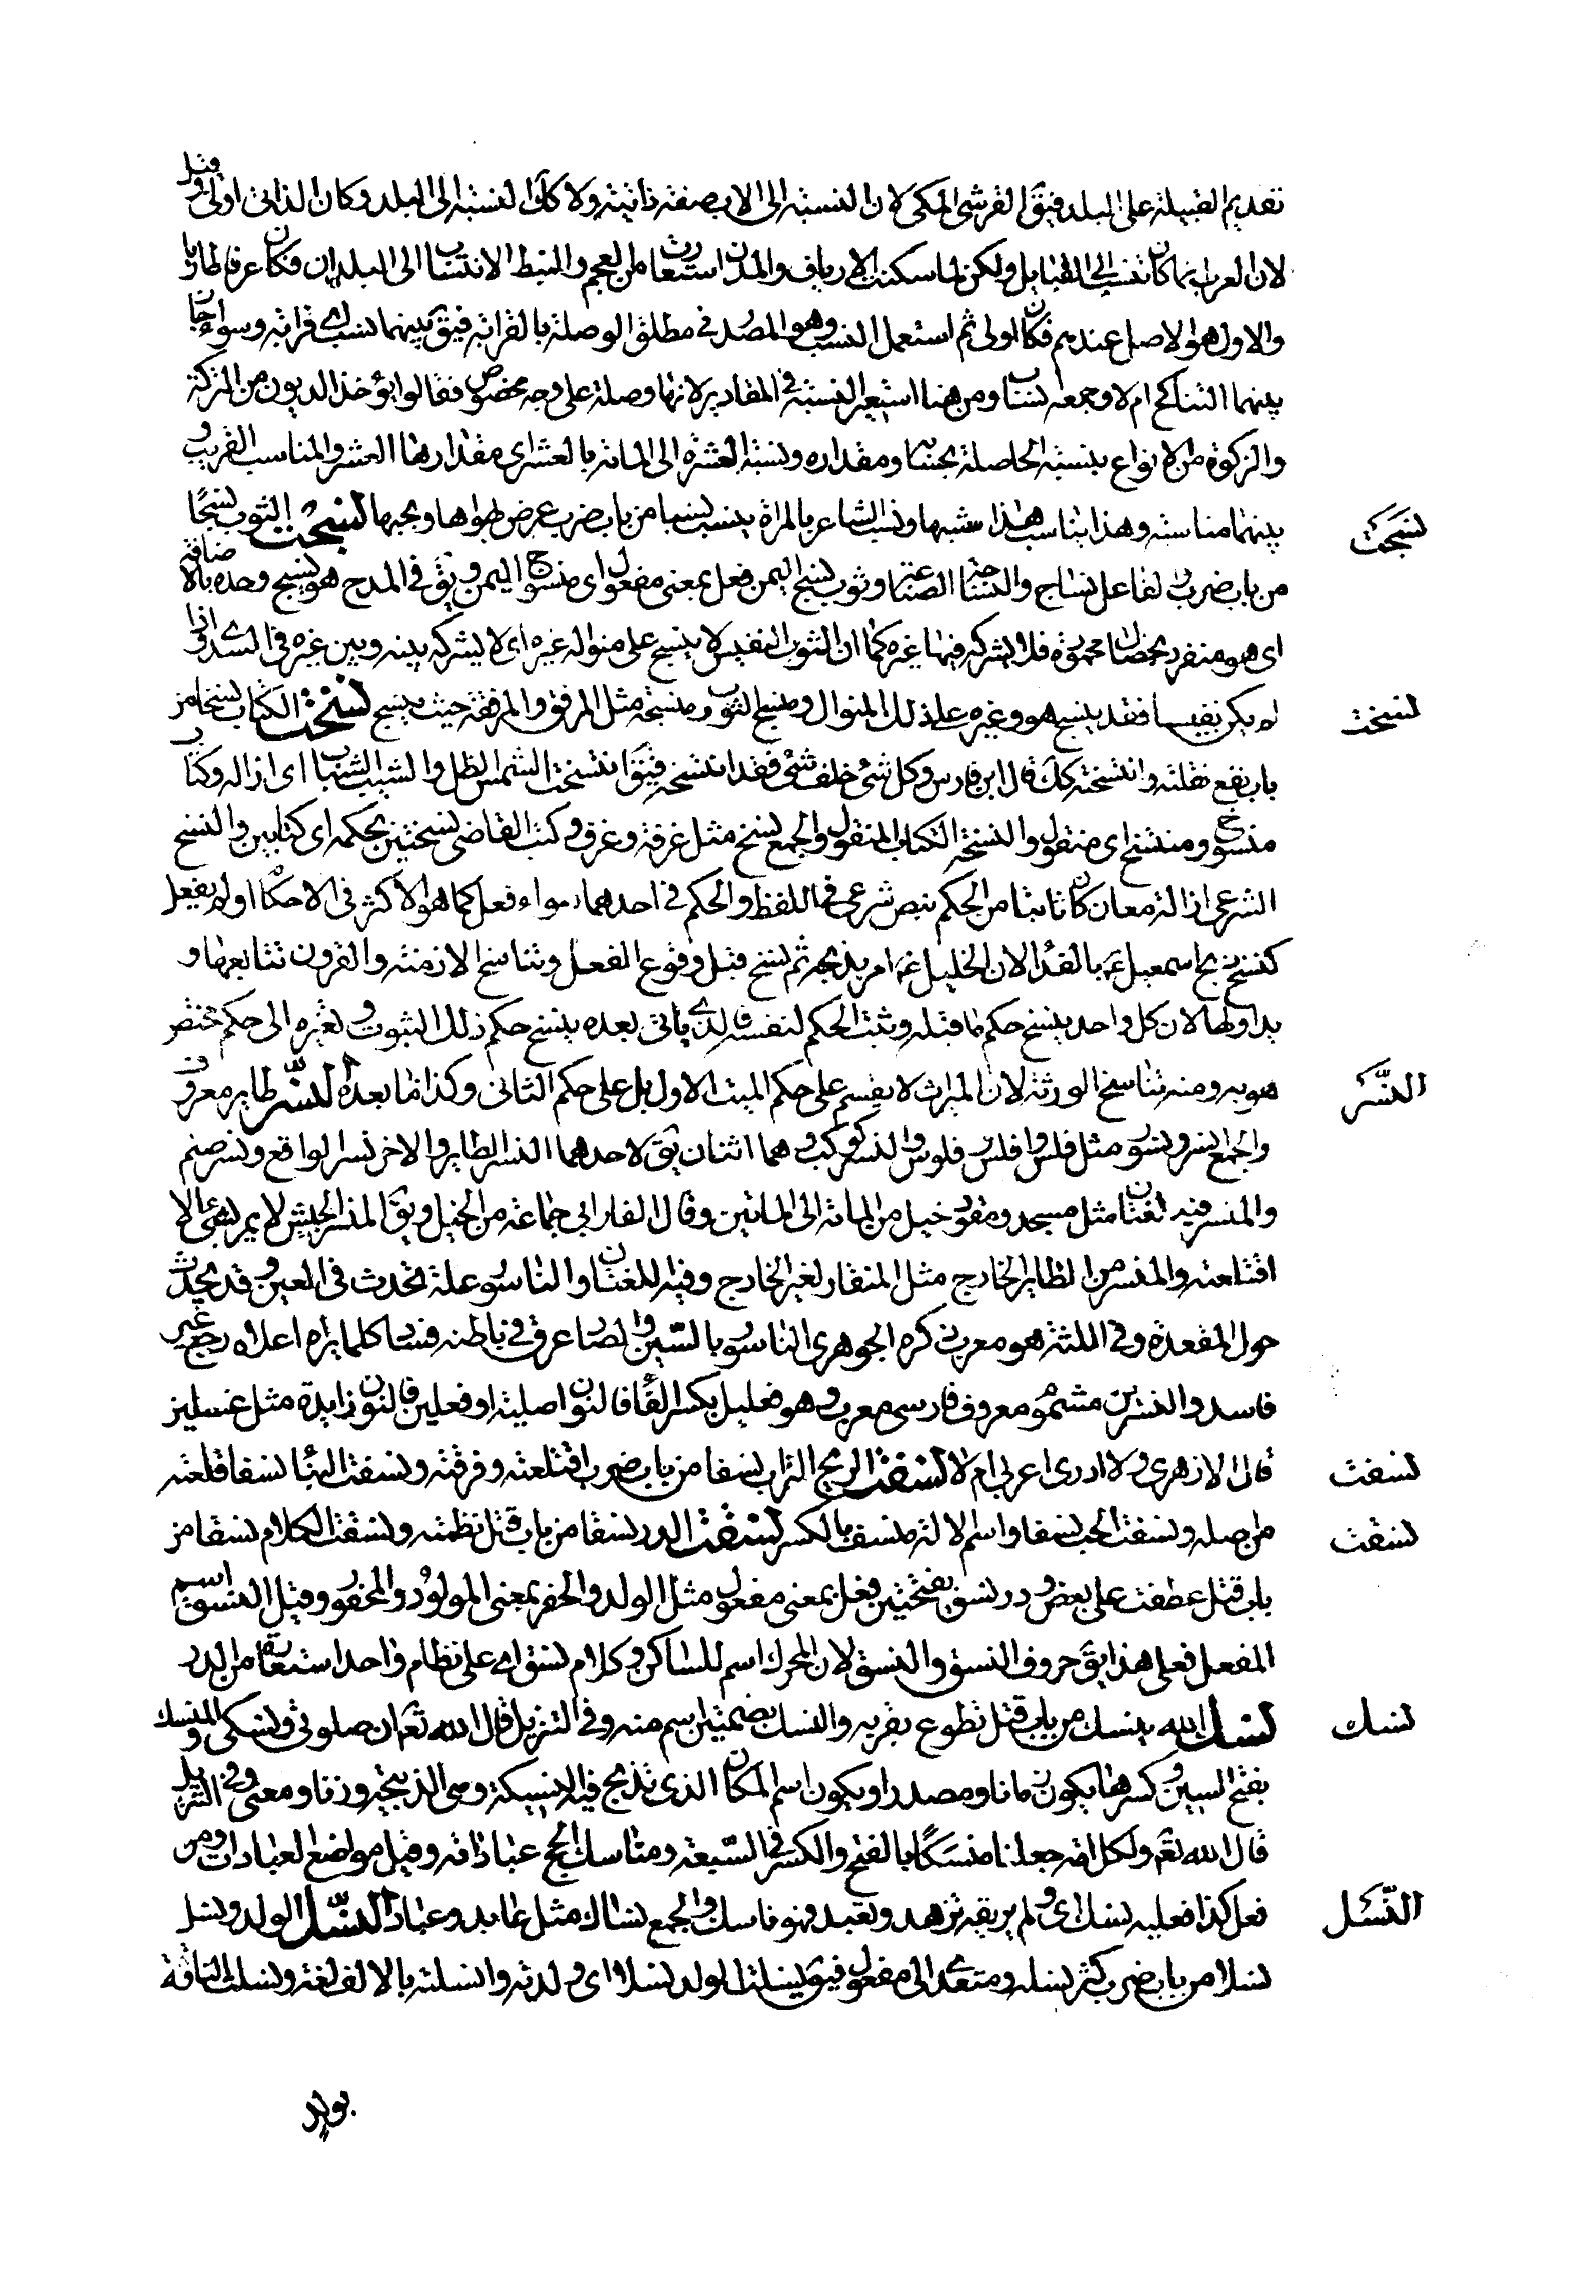 تقديم القبيلة على البلد فيق القرشى المكى لان النسبة الى الاب صفة ذاتية ولا كك النسبة الى البلد وكان الذاتى اولى وقيل
لان العرب انما كان تنتسب الى القبايل ولكن لما سكنت الارياف والمدن استعارت من العجم والنبط الانتساب الى البلدان فكان عرفا طاريا
والاول هو الاصل عندهم فكان اولى ثم استعمل النسب وهو المصدر فى مطلق الوصلة بالقرابة فيق بينهما نسب اى قرابة وسواء جاز
بينهما التناكح ام لا وجمعه انساب ومن هنا استعير النسبة فى المقادير لانها وصلة على وجه مخصوص فقالوا يؤخذ الديون من التركة
والزكوة من الانواع بنسبة الحاصلة بحسابه ومقداره ونسبة العشرة الى الماتة بالعشر اى مقدارها العشر والمناسب القريب و
بينهما مناسبة وهذا يناسب هذا مشبها ونسب الشاعر بالمراة ينسب نسيبا من باب ضرب عرض بهواها وبحبها نسجت الثوب نسجًا
نسجت
من باب ضرب الفاعل نساج والنساجة الصناعة وثوب نسج اليمن فعل بمعنى مفعول اى منسوج اليمن ويق فى المدح هو نسيج وحده بالاضافة
اى هو منفرد بخصال محمودة فلا يشركه فيها غيره كما ان الثوب النفيس لا ينسج على منواله غيره اى لا يشركه بينه وبين غيره فى السدى واذا
لم يكن نفيسا فقد ينسج هو وغيره على ذلك المنوال ومنسج الثوب ومنسجه مثل المرفق والمرفقة حيث ينسج نسخت الكتاب نسخا من
نسخت
باب نفع نقلته وانتسخته كك قال ابن فارس وكل شئ خلف شئ فقد انتسخه فيق انتسخت الشمس الظل والشيب الشباب اى ازاله وكتاب
منسوخ ومنتسخ اى منقول والنسخة الكتاب المنقول والجمع نسخ مثل غرفة وغرف وكتب القاضى نسختين بحكمه اى كتابين والنسخ
الشرعى ازالة معان كان ثابتا من الحكم بنص شرعى فى اللفظ والحكم فى احدهما سواء فعل كما هو الاكثر فى الاحكام او لم يفعل
كنسخ ذبح اسمعيل ع بالفداء لان الخليل ع امر بذبحه ثم نسخ قبل وقوع الفعل وتناسخ الازمنة والقرون تتابعها و
تداولها لان كل واحد ينسخ حكم ما قبله ويثبت الحكم لنفسه فالذى ياتى بعده ينسخ حكم ذلك الثبوت ويغيره الى حكم مختص
هو به ومنه تناسخ الورثة لان الميراث لا يقسم على حكم الميت الاول بل على حكم الثانى وكذا ما بعده النسر طاير معروف
النَّسْر
والجمع انسر ونسور مثل فلس وافلس وفلوس والنسر كوكب وهما اثنان يق لاحدهما النسر الطاير والاخر نسر الواقع ونسر صنم
والمنسر فيه لغتان مثل مسجد ومقود خيل من الماتة الى الماتين وقال الفارابى جماعة من الخيل ويق المنسر الجيش لا يمر بشئ الا
اقتلعه والمنسر من الطاير الجارح مثل المنقار لغير الجارح وفيه اللغتان والناسور علة تحدث فى العين وقد يحدث
حول المقعدة وفى اللثة هو معرب ذكره الجوهرى الناسور بالسّين والصاد عرق فى باطنه فساد كلما براه اعلاه رجع غبر
فاسدا والنسرين مشموم معروف فارسى معرب وهو فعليل بكسر الفاء فالنون اصلية او فعلين فالنون زايدة مثل غسلين
قال الازهرى ولا ادرى اعربى ام لا نسفت الريح التراب نسفا من باب ضرب اقتلعته وفرقته ونسفت البناء نسفا قلعته
نسفت
من اصله ونسفت الحب نسفا واسم الالة منسف بالكسر نسقت الدر نسقا من باب قتل نظمته ونسقت الكلام نسقا من
نسقت
باب قتل عطفت على بعض ودر نسق بفتحتين فعل بمعنى مفعول مثل الولد والحفر بمعنى المولود والمحفور وقيل النسق اسم
المفعل فعلى هذا يق حروف النسق والنسق لان المحرك اسم للساكن وكلام نسق اى على نظام واحد استعارة من الدر
نسك لله ينسك من باب قتل تطوع بقربة والنسك بضمتين اسم منه وفى التنزيل قال الله تعم ان صلوتى ونسكى والمنسك
نسك
بفتح السين وكسرها يكون زمانا ومصدرا ويكون اسم المكان الذى تذبح فيه النسيكة وهى الذبيحة وزنا ومعنى وفى التنزيل
قال الله تعم ولكل امة جعلنا منسكًا بالفتح والكسر فى السّبعة ومناسك الحج عباداته وقيل مواضع العبادات ومن
فعل كذا فعليه نسك اى دم يريقه تزهد وتعبد فهو ناسك والجمع نساك مثل عابد وعباد النسّل الولد ونسل
النَّسْل
نسلا من باب ضرب كثر نسله ومتعدى الى مفعول فيق نسلت الولد نسلا اى ولدته وانسلته بالالف لغة ونسلت الناقة
بولد